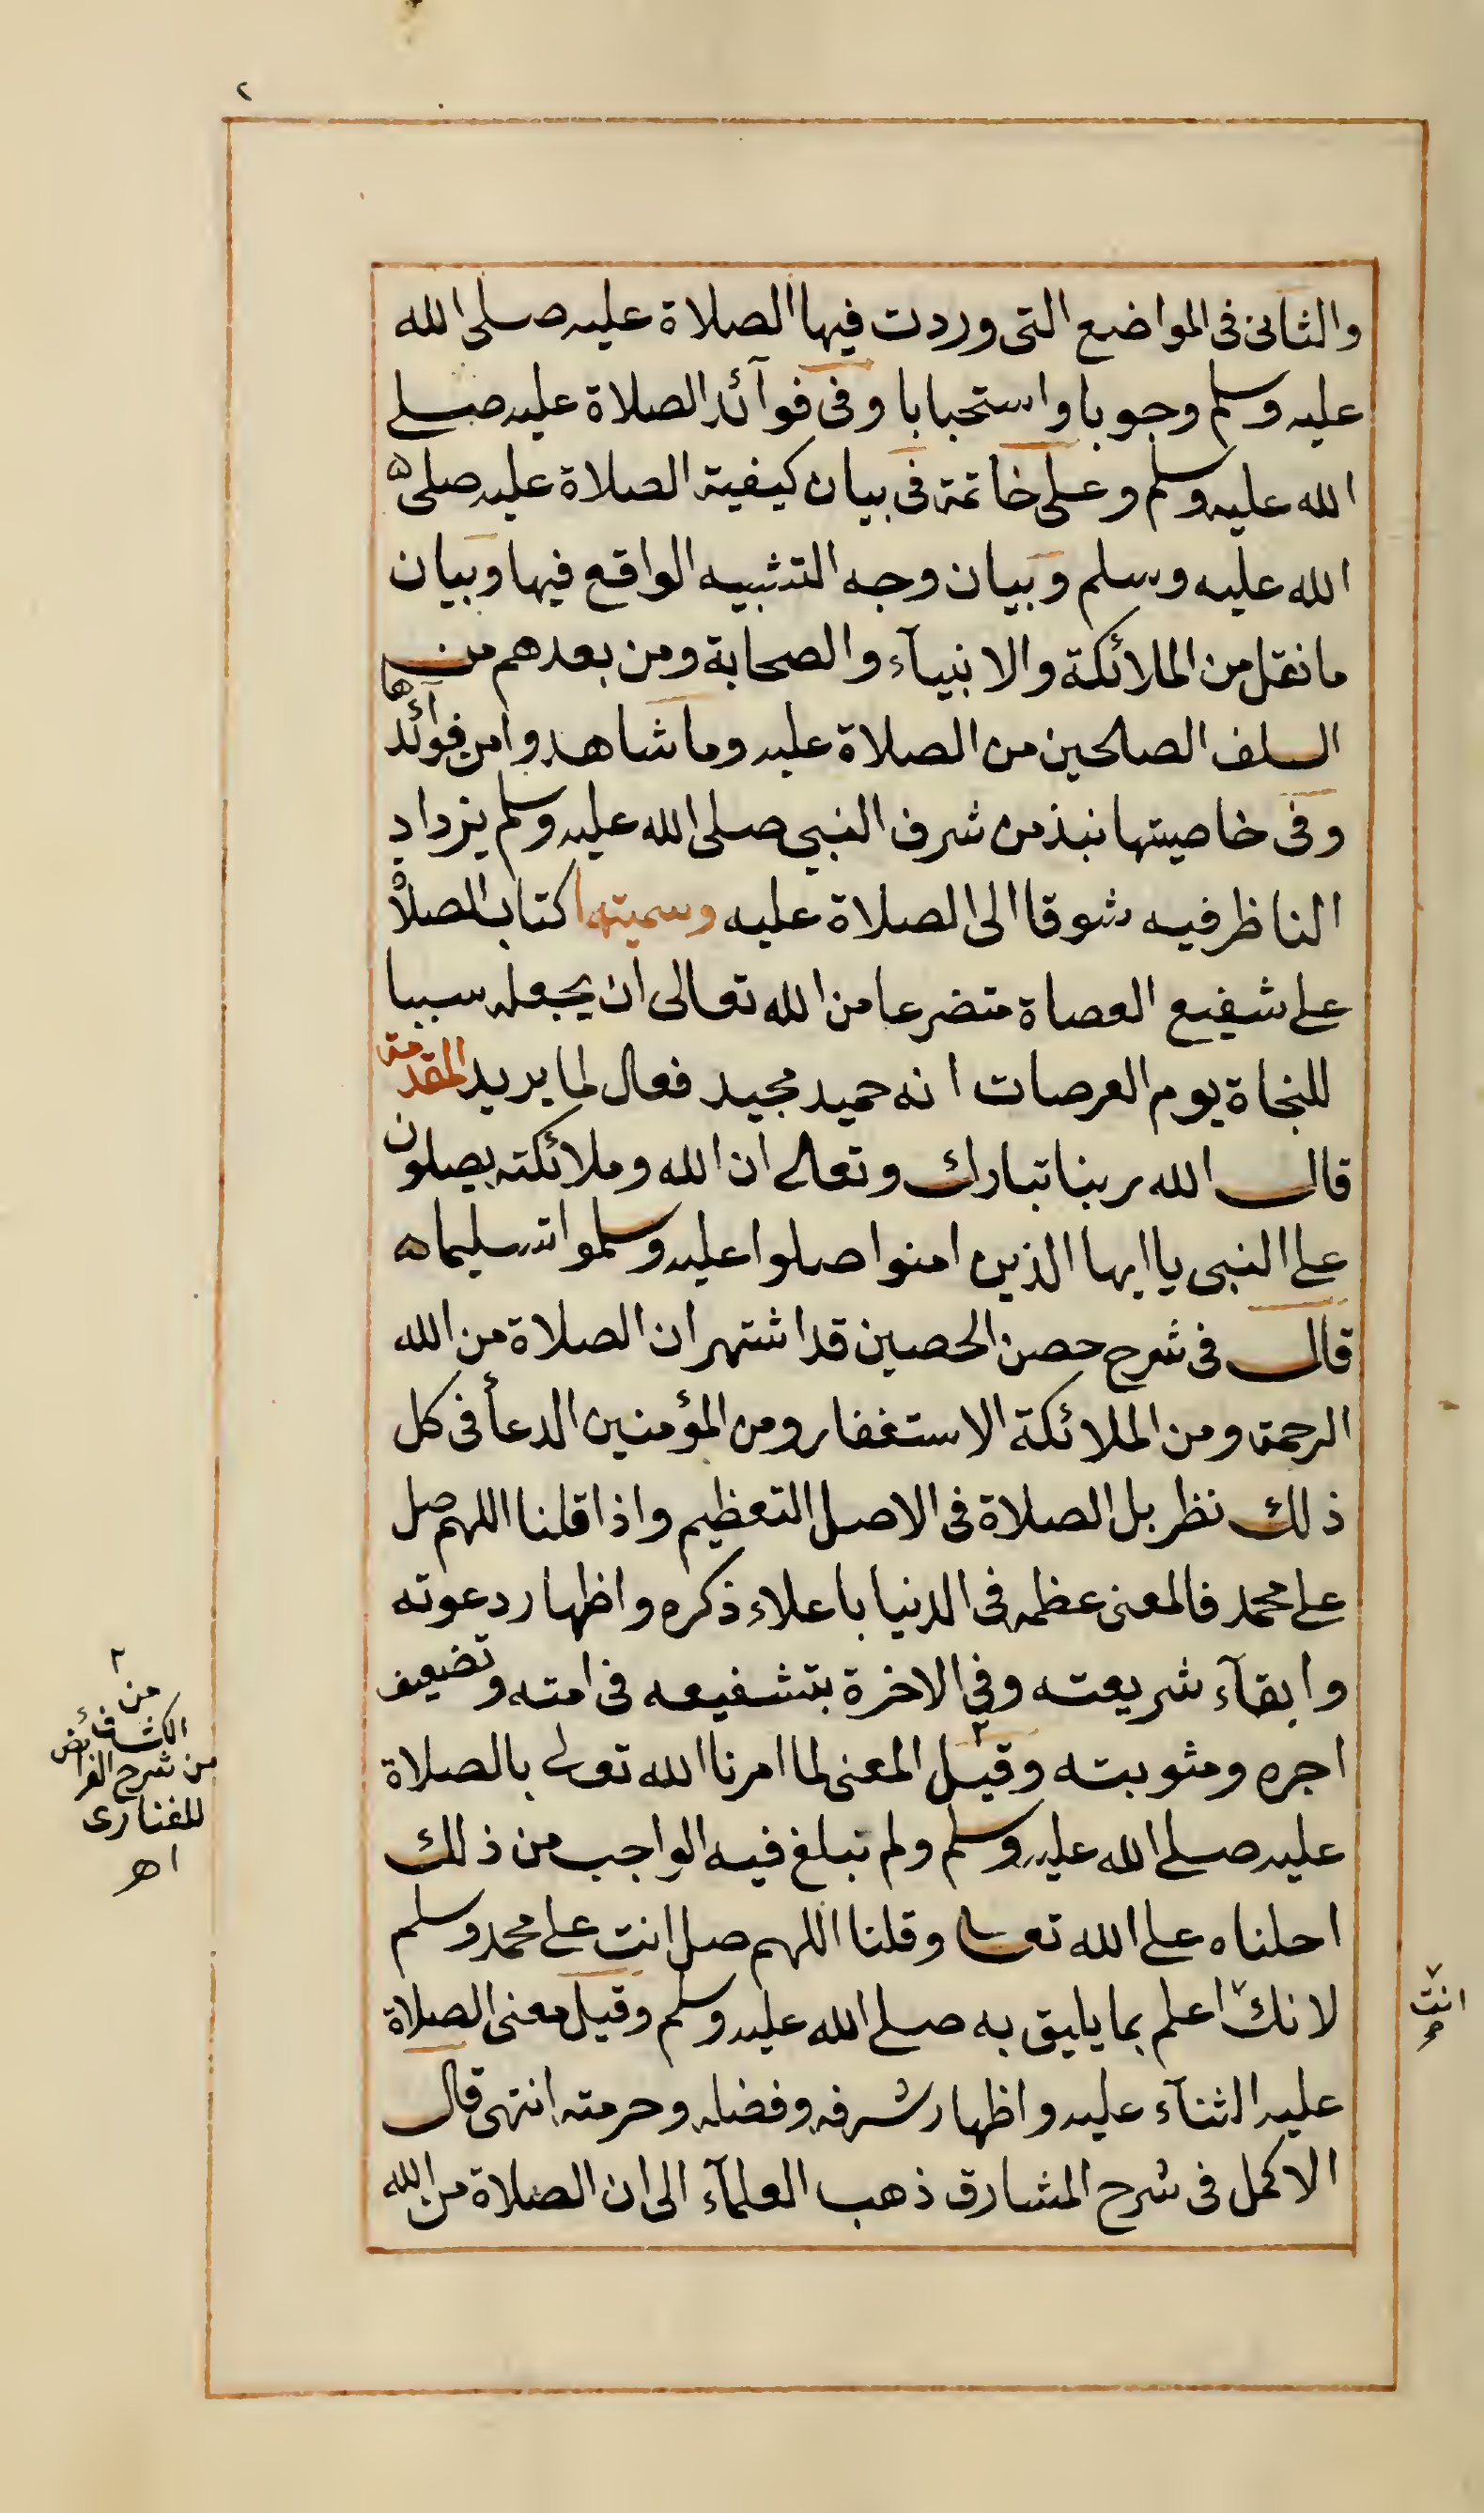 ٢
والثانى فى المواضع التى وردت فيها الصلاة عليه صلى الله
عليه وسلم وجوبا واستحبابا وفى فوآئد الصلاة عليه صلى
الله عليه وسلم وعلى خاتمة فى بيان كيفية الصلاة عليه صلى
الله عليه وسلم وبيان وجه التشبيه الواقع فيها وبيان
ما نقل من الملائكة والانبيآء والصحابة ومن بعدهم من
السلف الصالحين من الصلاة عليه وما شاهدوا من فوآئدها
وفى خاصيتها نبذ من شرف النبى صلى الله عليه وسلم يزداد
الناظر فيه شوقا الى الصلاة عليه وسميتها كتاب الصلاة
على شفيع العصاة متضرعا من الله تعالى ان يجعله سببا
للنجاة يوم العرصات انه حميد مجيد فعال لما يريد المقدمة
قال الله ربنا تبارك وتعالى ان الله وملائكته يصلون
على النبى يا ايها الذين امنوا صلوا عليه وسلموا تسليما
قال فى شرح حصن الحصين قد اشتهر ان الصلاة من الله
الرحمة ومن الملائكة الاستغفار ومن المؤمنين الدعأ فى كل
ذلك نظر بل الصلاة فى الاصل التعظيم واذا قلنا اللهم صل
على محمد فالمعنى عظمه فى الدنيا باعلاء ذكره واظهار دعوته
وابقآء شريعته وفى الاخرة بتشفيعه فى امته وتضعيف
اجره ومثوبته وقيل المعنى لما امرنا الله تعالى بالصلاة
عليه صلى الله عليه وسلم ولم تبلغ فيه الواجب من ذلك
احلناه على الله تعالى وقلنا اللهم صل انت على محمد وسلم
لانك اعلم بما يليق به صلى الله عليه وسلم وقيل معنى الصلاة
عليه الثنآء عليه واظهار شرفه وفضله وحرمته انتهى قال
الاكمل فى شرح المشارق ذهب العلمآء الى ان الصلاة من الله
٢
من
الكشاف
من شرح الفرائض
للفنارى
اهـ
انت